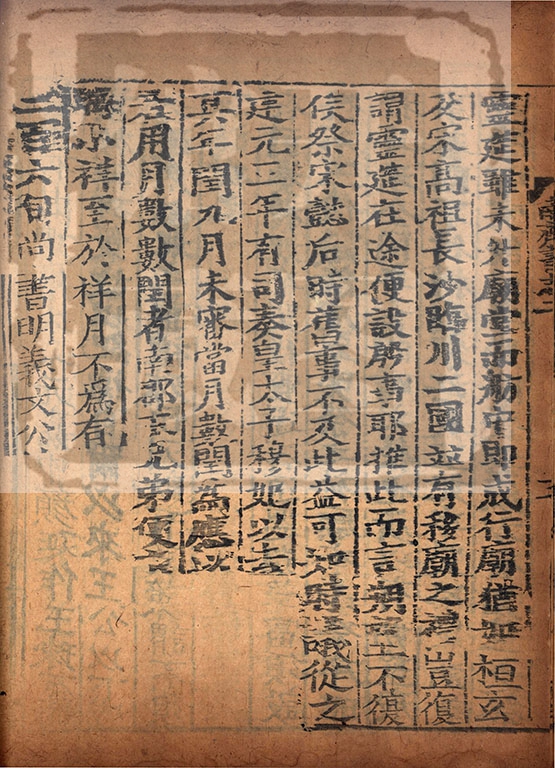 靈筵雖未升廟堂而舫中即成行廟猶如桓玄
及宋高祖長沙臨川二國並有移廟之禮豈復
謂靈筵在途便設殷事耶推此而言朔望不復
俟祭宋懿后時舊事不及此益可知時議從之
建元三年有司奏皇太子穆妃以去
其年閏九月未審當月數閏為應以
若用月數數閏者南郡王兄弟便應
晦小祥至於祥月不為有
三百六旬尚書明義文公